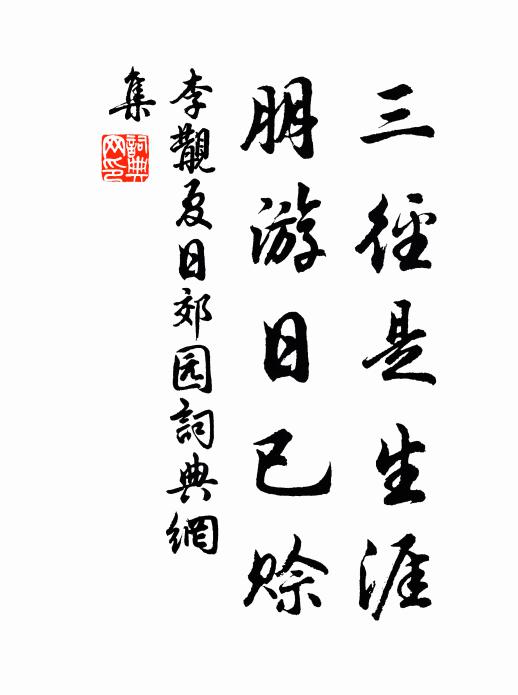 三徑是生涯
朋游日已赊
李觏夏日郊园詞典網
集
詞典
网印